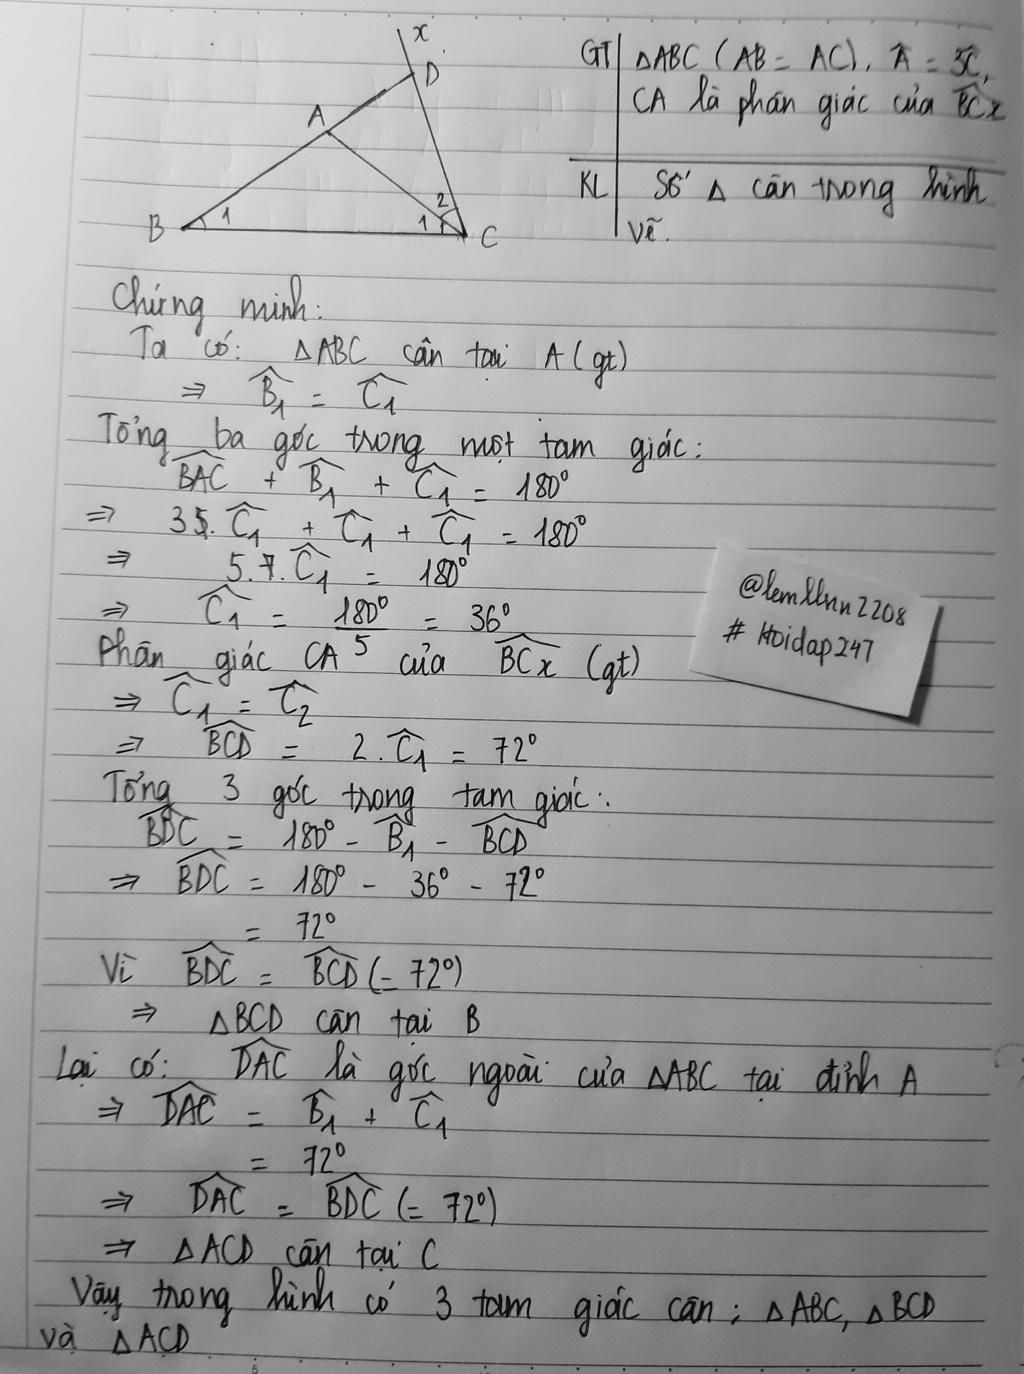 x
D
A
B 1
2
1 C
GT ΔABC (AB = AC), Â = 3Ĉ,
CA là phân giác của BCx
KL Số Δ cân trong hình
vẽ.
Chứng minh:
Ta có: ΔABC cân tại A (gt)
⇒ B̂₁ = Ĉ₁
Tổng ba góc trong một tam giác:
BAC + B̂₁ + Ĉ₁ = 180°
⇒ 3. Ĉ₁ + Ĉ₁ + Ĉ₁ = 180°
⇒ 5. Ĉ₁ = 180°
⇒ Ĉ₁ = 180°/5 = 36°
Phân giác CA của BCx (gt)
⇒ Ĉ₁ = Ĉ₂
⇒ BCD = 2. Ĉ₁ = 72°
Tổng 3 góc trong tam giác:
BDC = 180° - B̂₁ - BCD
⇒ BDC = 180° - 36° - 72°
= 72°
Vì BDC = BCD (= 72°)
⇒ ΔBCD cân tại B
Lại có: DAC là góc ngoài của ΔABC tại đỉnh A
⇒ DAC = B̂₁ + Ĉ₁
= 72°
⇒ DAC = BDC (= 72°)
⇒ ΔACD cân tại C
Vậy trong hình có 3 tam giác cân; ΔABC, ΔBCD
và ΔACD
@lemllnn2208
# Hoidap247